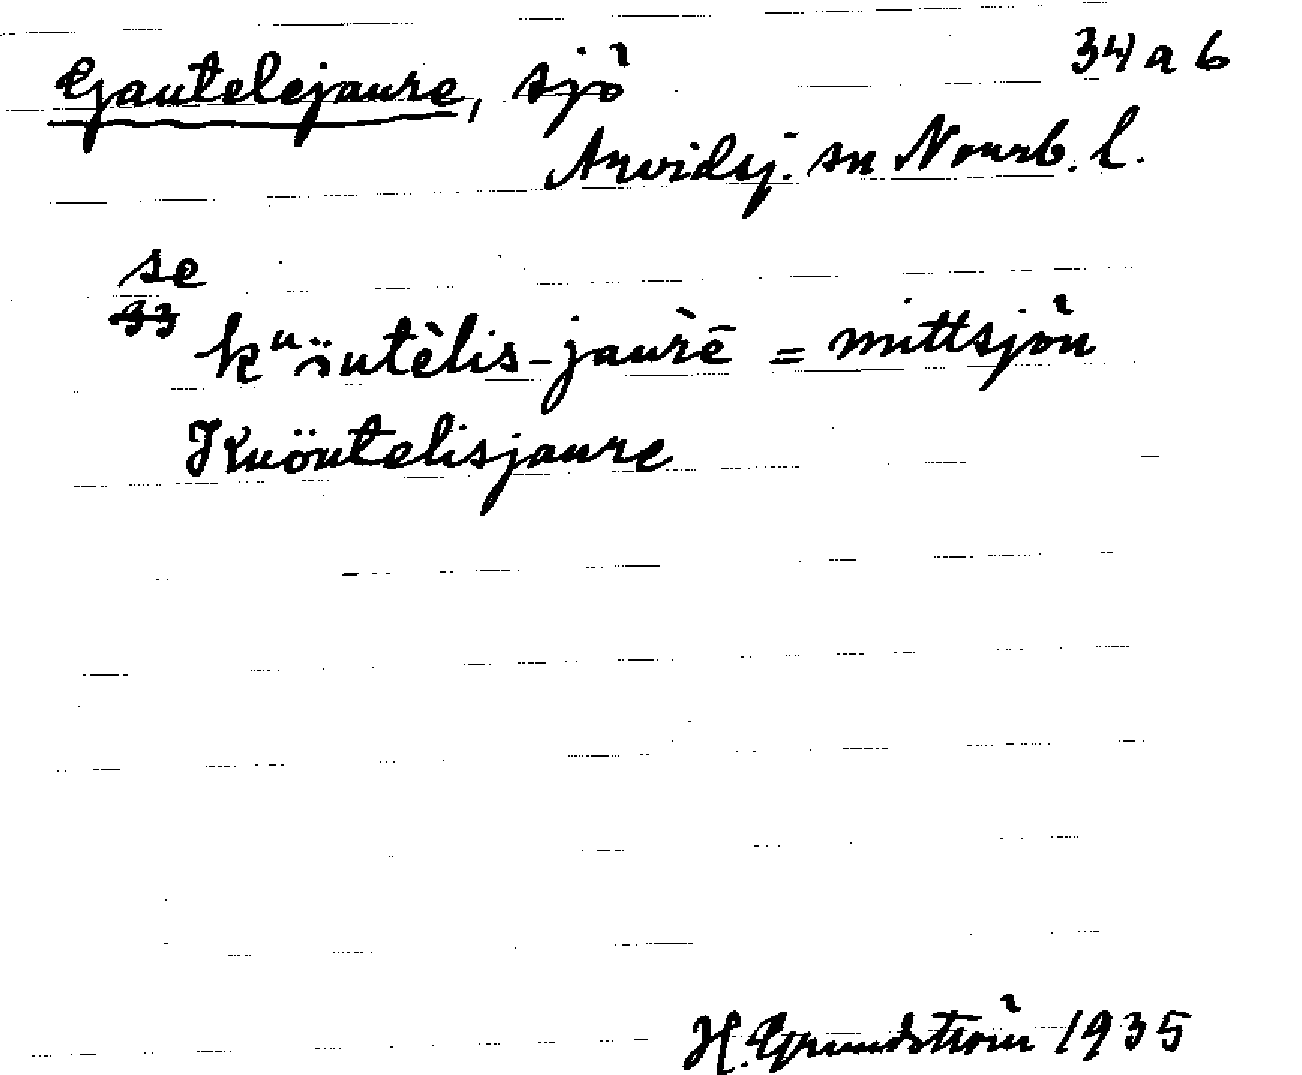 Gautelejaure, sjö 34 a b
Arvidsj. sn Norrb. l.
se
33
kᵘöutèlis-jaurē = mittsjön
Kuöutelisjaure
H. Grundström 1935